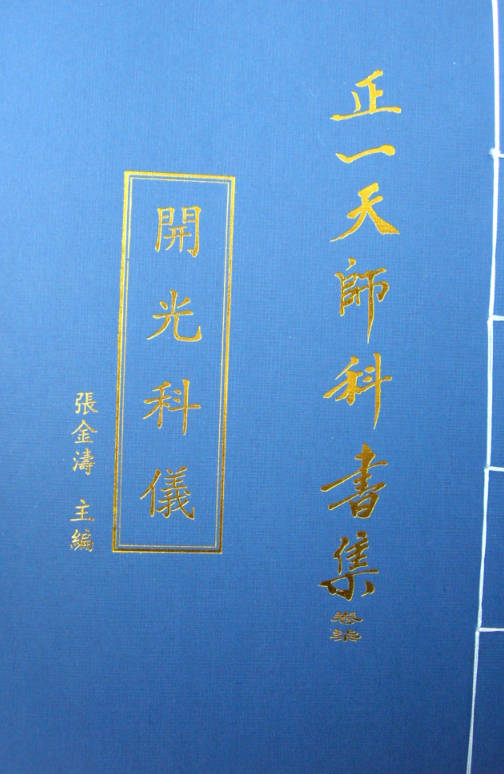 正一天師科書集
卷柒
開光科儀
張金濤 主編